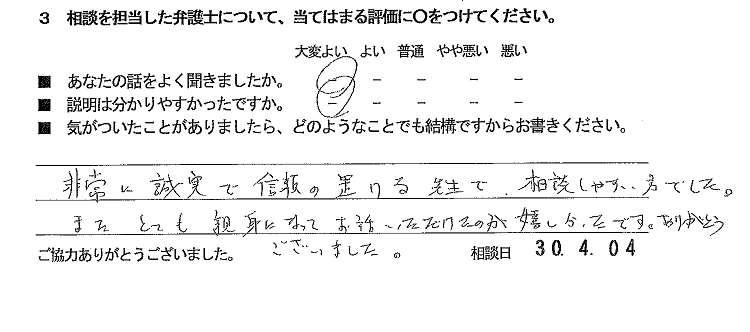 3 相談を担当した弁護士について、当てはまる評価に〇をつけてください。
大変よい よい 普通 やや悪い 悪い
■ あなたの話をよく聞きましたか。 － － － － －
■ 説明は分かりやすかったですか。 － － － － －
■ 気がついたことがありましたら、どのようなことでも結構ですからお書きください。
非常に誠実で信頼の置ける先生で、相談しやすい方でした。
また とても親身になってお話いただけたのが嬉しかったです。ありがとう
ございました。
ご協力ありがとうございました。 相談日 30.4.04